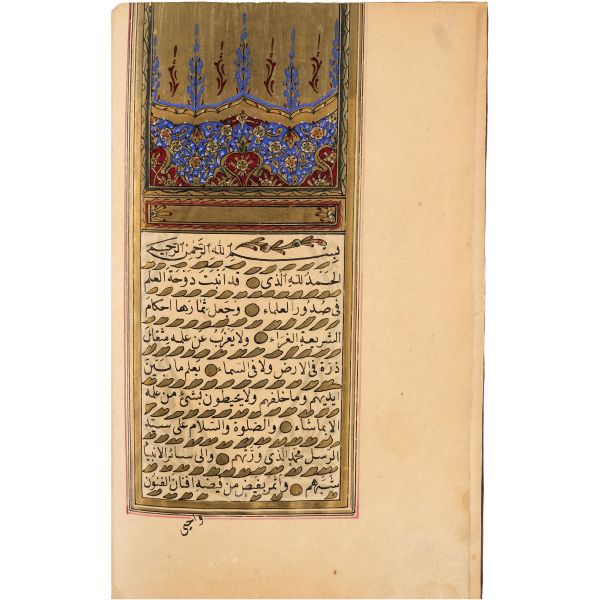 بسم الله الرحمن الرحيم
الحمد لله الذى قد انبت دوحة العلم
فى صدور العلماء وجعل ثمارها احكام
الشريعة الغراء ولا يعزب عن علمه مثقال
ذرة فى الارض ولا فى السماء يعلم ما بين
يديهم وما خلفهم ولا يحيطون بشئ من علمه
الا بما شاء والصلوة والسلام على سيد
الرسل محمد الذى وزنهم والى سائر الانبياء
شبههم واثمر بفيض من فيضه افنان الفنون
واحيى